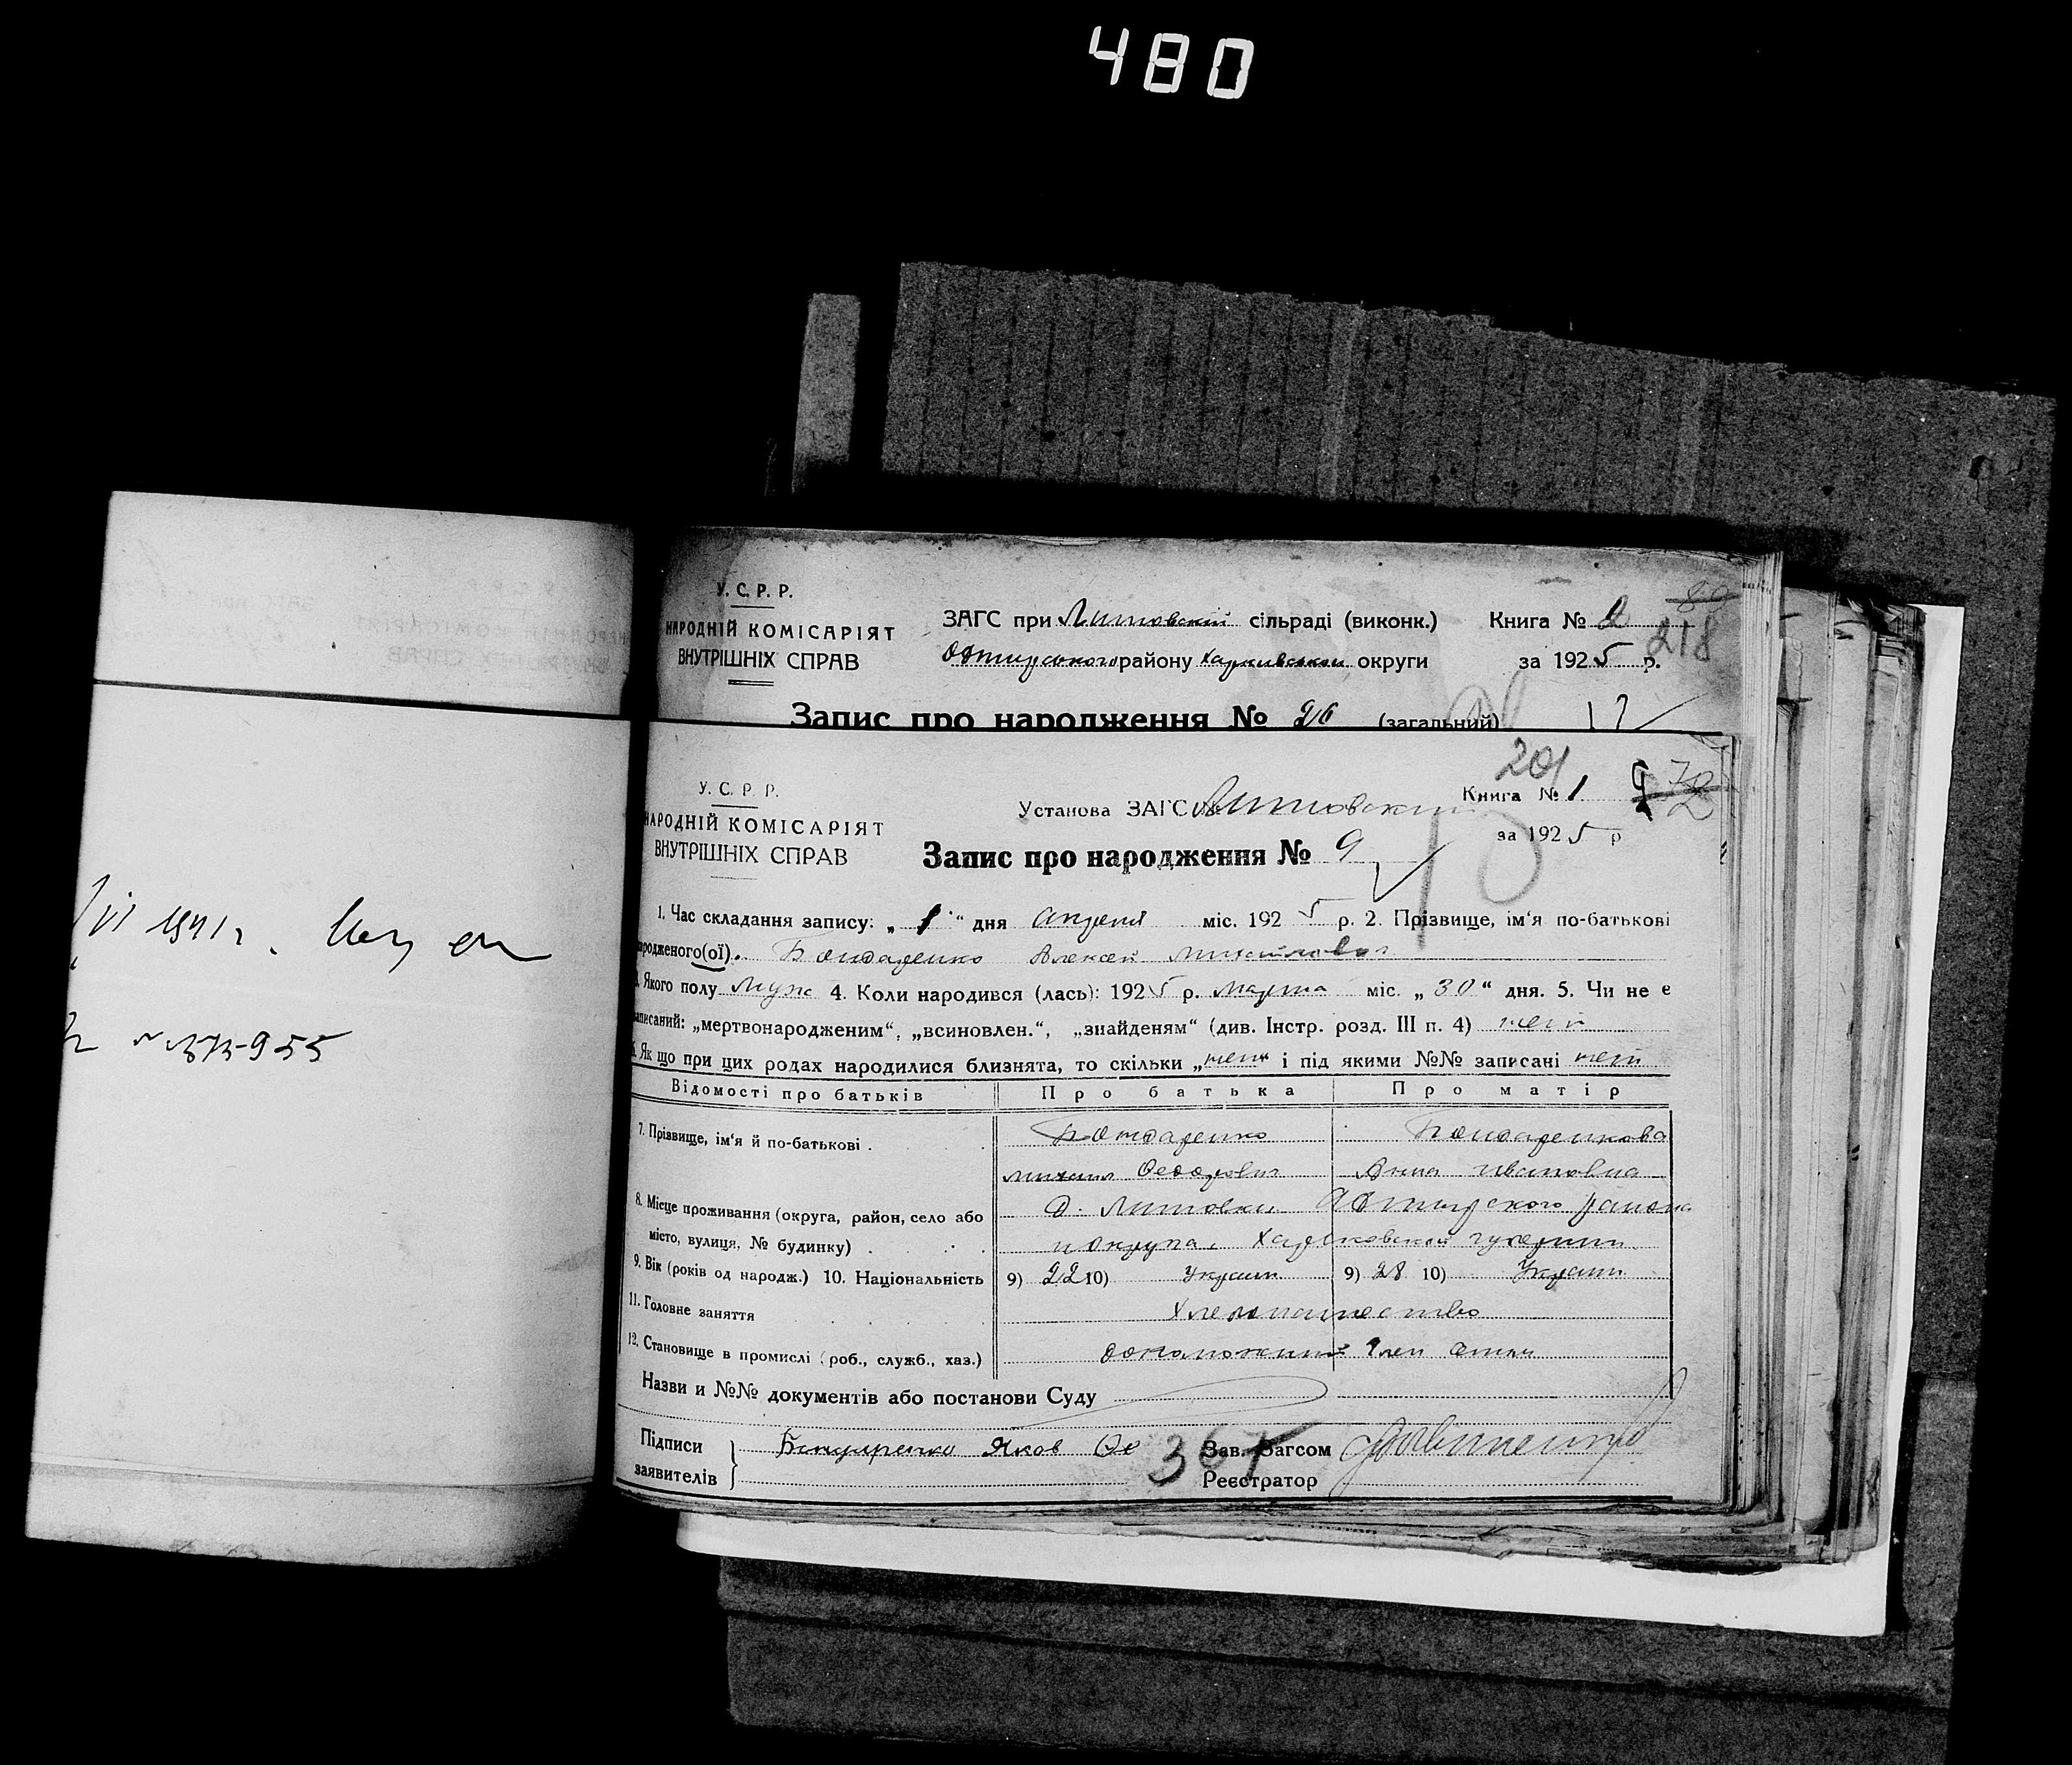 480
У. С. Р. Р.
НАРОДНІЙ КОМІСАРІЯТ
ВНУТРІШНІХ СПРАВ
ЗАГС при Литовскій сільраді (виконк.)
району Харківської округи
Книга № 2
за 1925 р.
80
218
Запис про народження № 26 (загальний)
201
У. С. Р. Р.
НАРОДНІЙ КОМІСАРІЯТ
ВНУТРІШНІХ СПРАВ
Установа ЗАГС Литовский
Книга № 1
за 1925 р
Запис про народження № 9
1. Час складання запису: „ 1 “ дня апреля міс. 1925 р. 2. Прізвище, ім‘я по-батькові
народженого(ої). Бондаренко Алексей Михайлович
Якого полу муж 4. Коли народився (лась): 1925 р. марта міс. „ 30 “ дня. 5. Чи не є
записаний: „мертвонародженим“, „всиновлен.“, „знайденям“ (див. Інстр. розд. III п. 4) нет
6. Як що при цих родах народилися близнята, то скільки „нет“ і під якими №№ записані нет
Відомості про батьків Про батька Про матір
7. Прізвище, ім‘я й по-батькові . Бондаренко Бондаренкова
Михаил Федорович Анна Ивановна
8. Місце проживання (округа, район, село або
місто, вулиця, № будинку) . Д. Литовки Ахтырского района
и округа, Харьковской губернии.
9. Вік (років од народж.) 10. Національність 9) 22 10) Украин 9) 28 10) Украин
11. Головне заняття Хлебопашество
12. Становище в промислі (роб., служб., хаз.) член семьи
Назви и №№ документів або постанови Суду
Підписи
заявителів
Бондаренко Яков Фе
367
Зав. Загсом
Реєстратор
1941 г.